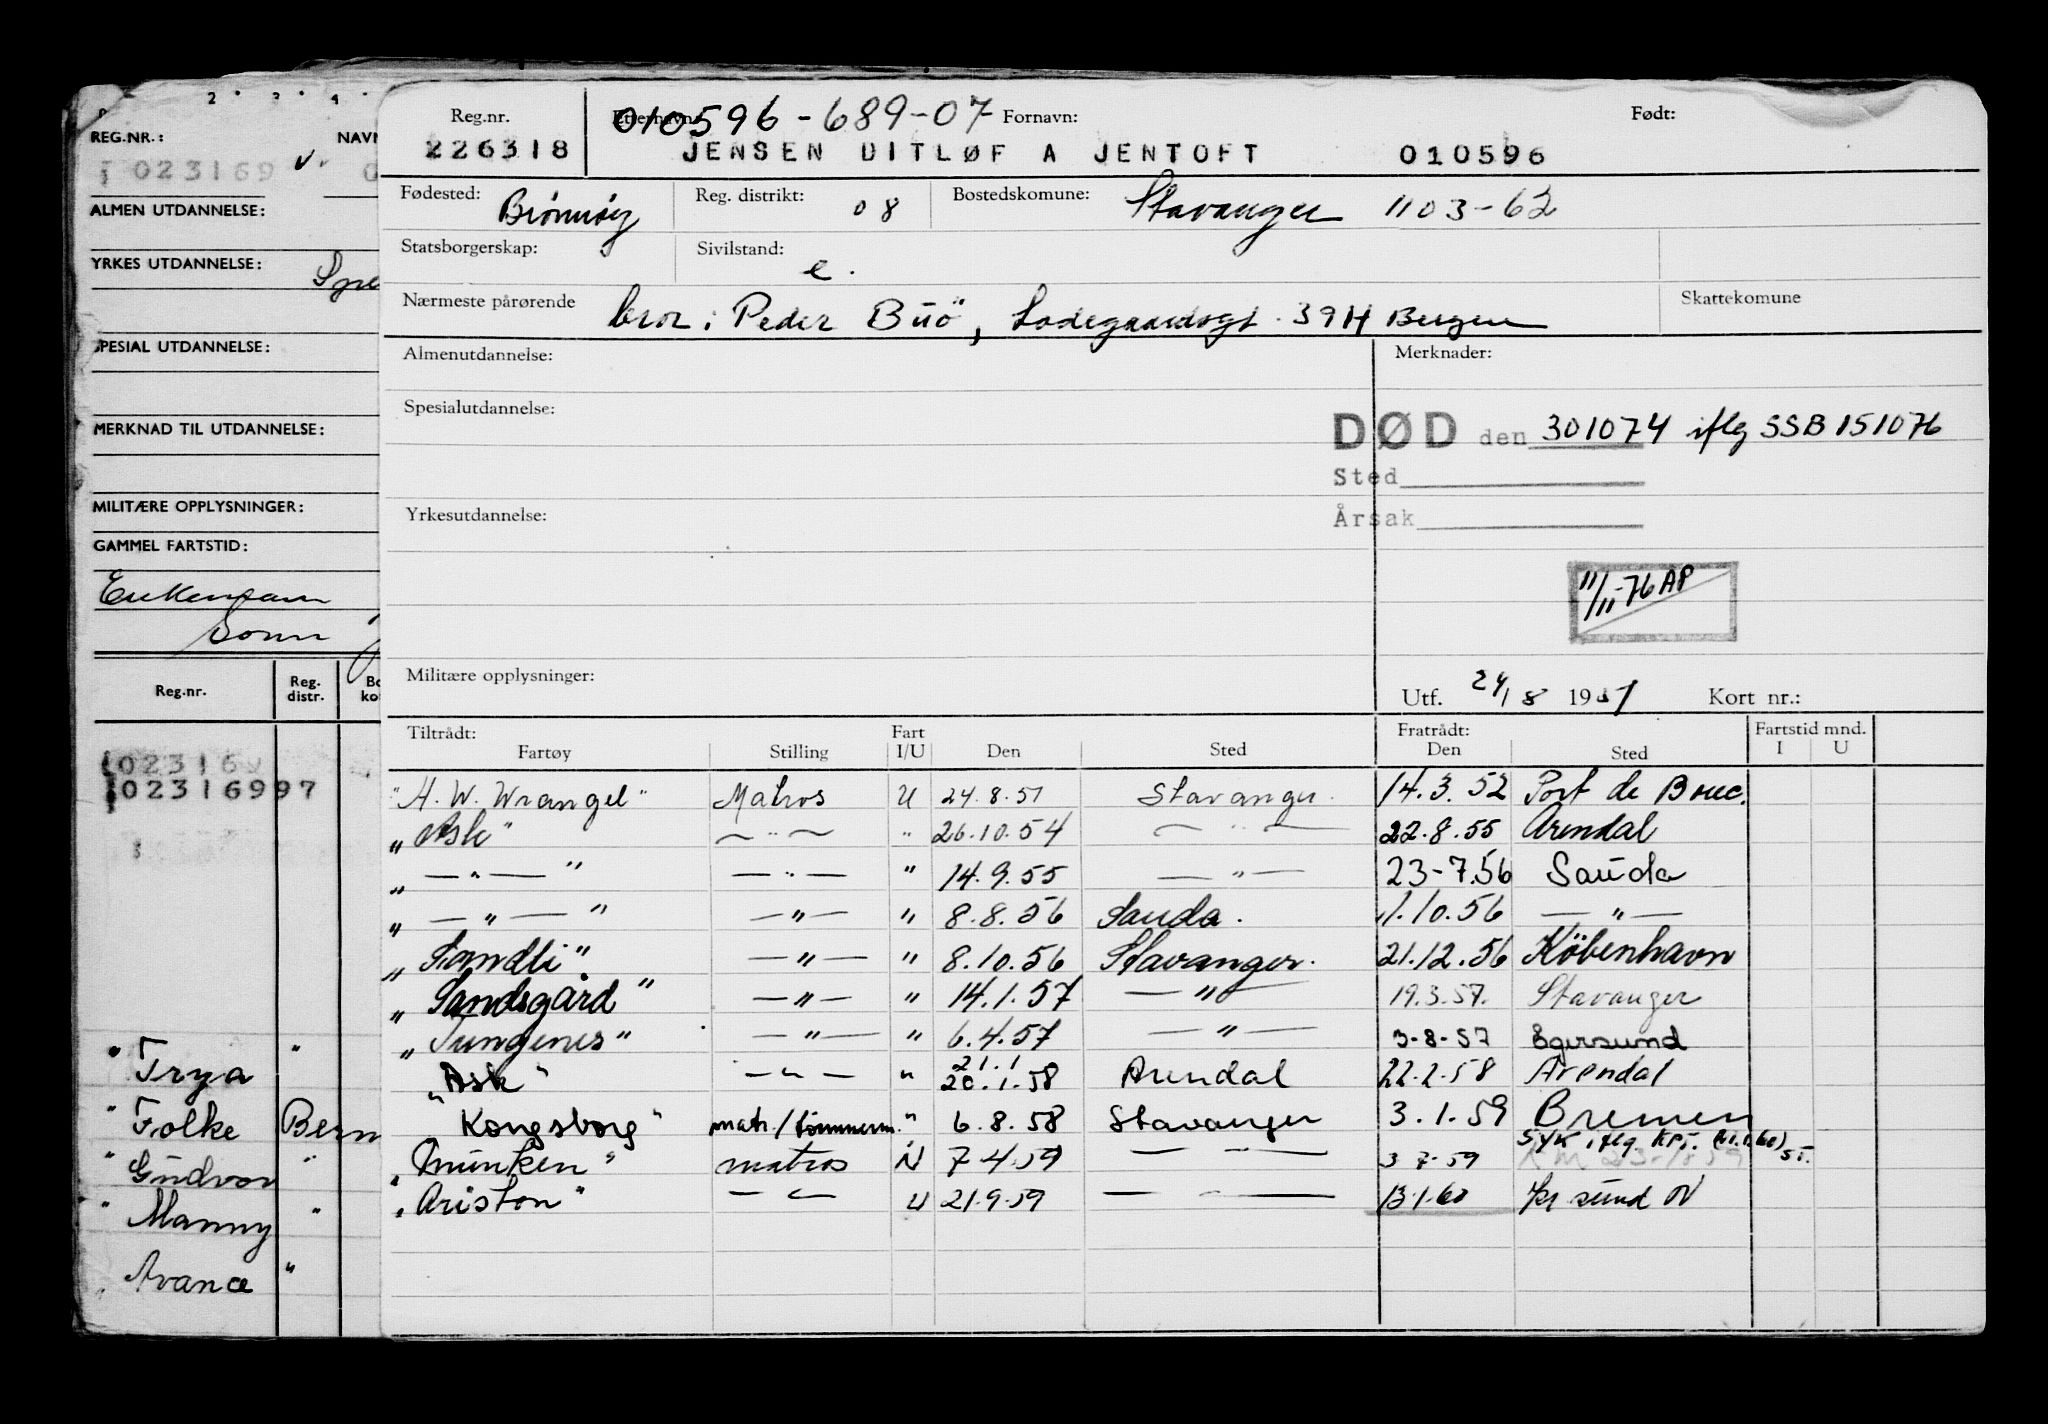 2 · 3 · 4 ·
REG.NR.: NAVN
023169
ALMEN UTDANNELSE:
YRKES UTDANNELSE:
SPESIAL UTDANNELSE:
MERKNAD TIL UTDANNELSE:
MILITÆRE OPPLYSNINGER:
GAMMEL FARTSTID:
Enkemann
Sønn
Reg.nr. Reg. distr.
02316
02316997
" Trya "
" Folke Bern
" Gudvor "
" Manny "
Avance "
Reg.nr. Etternavn: 010596-689-07 Fornavn: Født:
226318 JENSEN DITLØF A JENTOFT 010596
Fødested: Brønnøy Reg. distrikt: 08 Bostedskomune: Stavanger 1103-62
Statsborgerskap: Sivilstand: e.
Nærmeste pårørende bror: Peder Buö, Ladegaardsgt. 39 H Bergen Skattekomune
Almenutdannelse: Merknader:
Spesialutdannelse:
DØD den 301074 iflg SSB 151076
Sted
Årsak
Yrkesutdannelse:
11/11-76 AP
Militære opplysninger: Utf. 24/8 1951 Kort nr.:
Tiltrådt: Fart Fratrådt: Fartstid mnd.
Fartøy Stilling I/U Den Sted Den Sted I U
"H. W. Wrangel" Matros U 24.8.51 Stavanger. 14.3.52 Port de Bouc.
"Ask" — " — " 26.10.54 — " — 22.8.55 Arendal
" — " — " — " — " 14.9.55 — " — 23-7.56 Sauda
" — " — " — " — " 8.8.56 Sauda. 1.10.56 — " —
"Sandli" — " — " 8.10.56 Stavanger. 21.12.56 København
"Sandsgård" — " — " 14.1.57 — " — 19.3.57. Stavanger
"Tungenes" — " — " 6.4.57 — " — 3-8-57 Egersund
21.1
"Ask" — " — " 20.1.58 Arendal 22.2.58 Arendal
Kongsborg" matr./tømmerm. " 6.8.58 Stavanger 3.1.59 Bremen
syk iflg. KPT.
"Munken" matros N 7-4-59 — " — 3-7-59
"Ariston" — " — U 21.9.59 — " — 13.1.60 Kr sund N